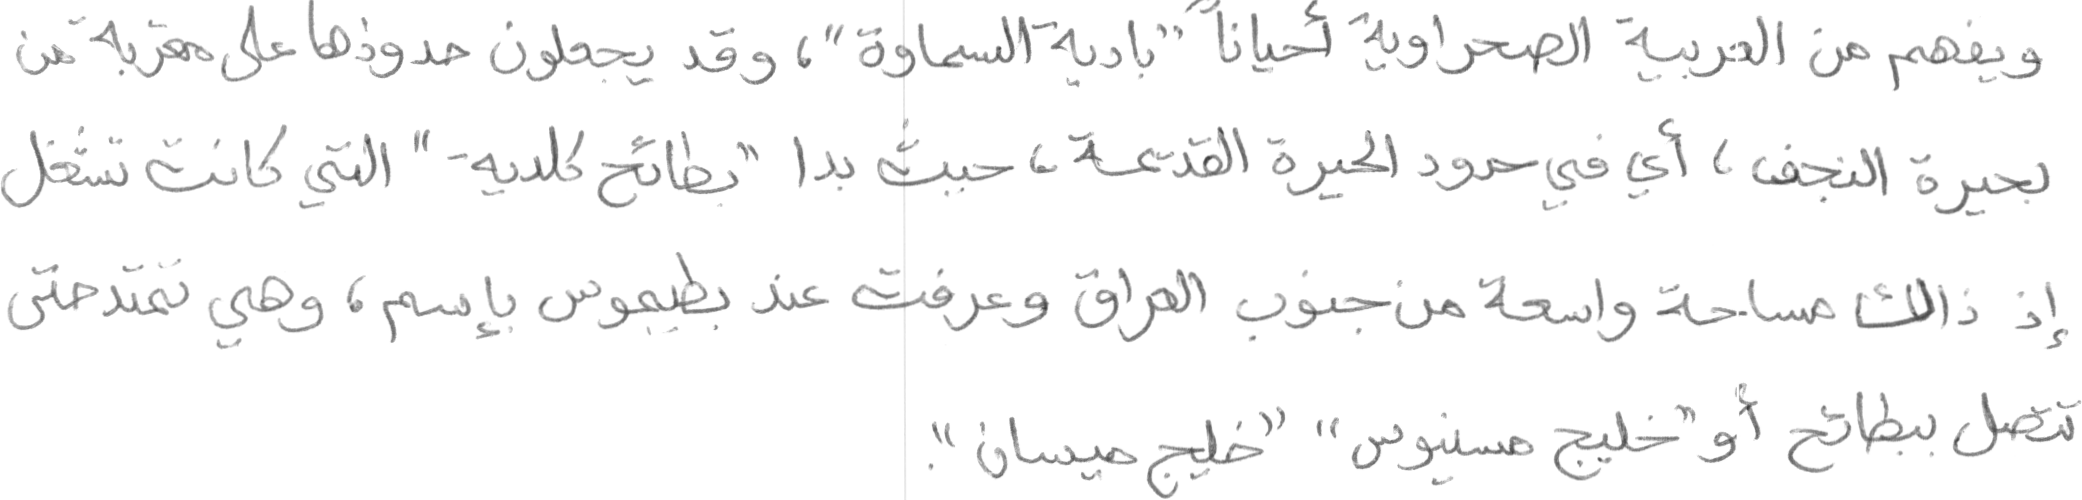 ويفهم من العربية الصحراوية أحياناً "بادية السماوة"، وقد يجعلون حدودها على مقربة من
بحيرة النجف، أي في حدود الحيرة القديمة، حيث بدا "بطائح كلدية" التي كانت تشغل
إذ ذالك مساحة واسعة من جنوب العراق وعرفت عند بطليموس بإسم، وهي تمتد حتى
تتصل ببطائح أو "خليج مسنيوس" "خليج ميسان".